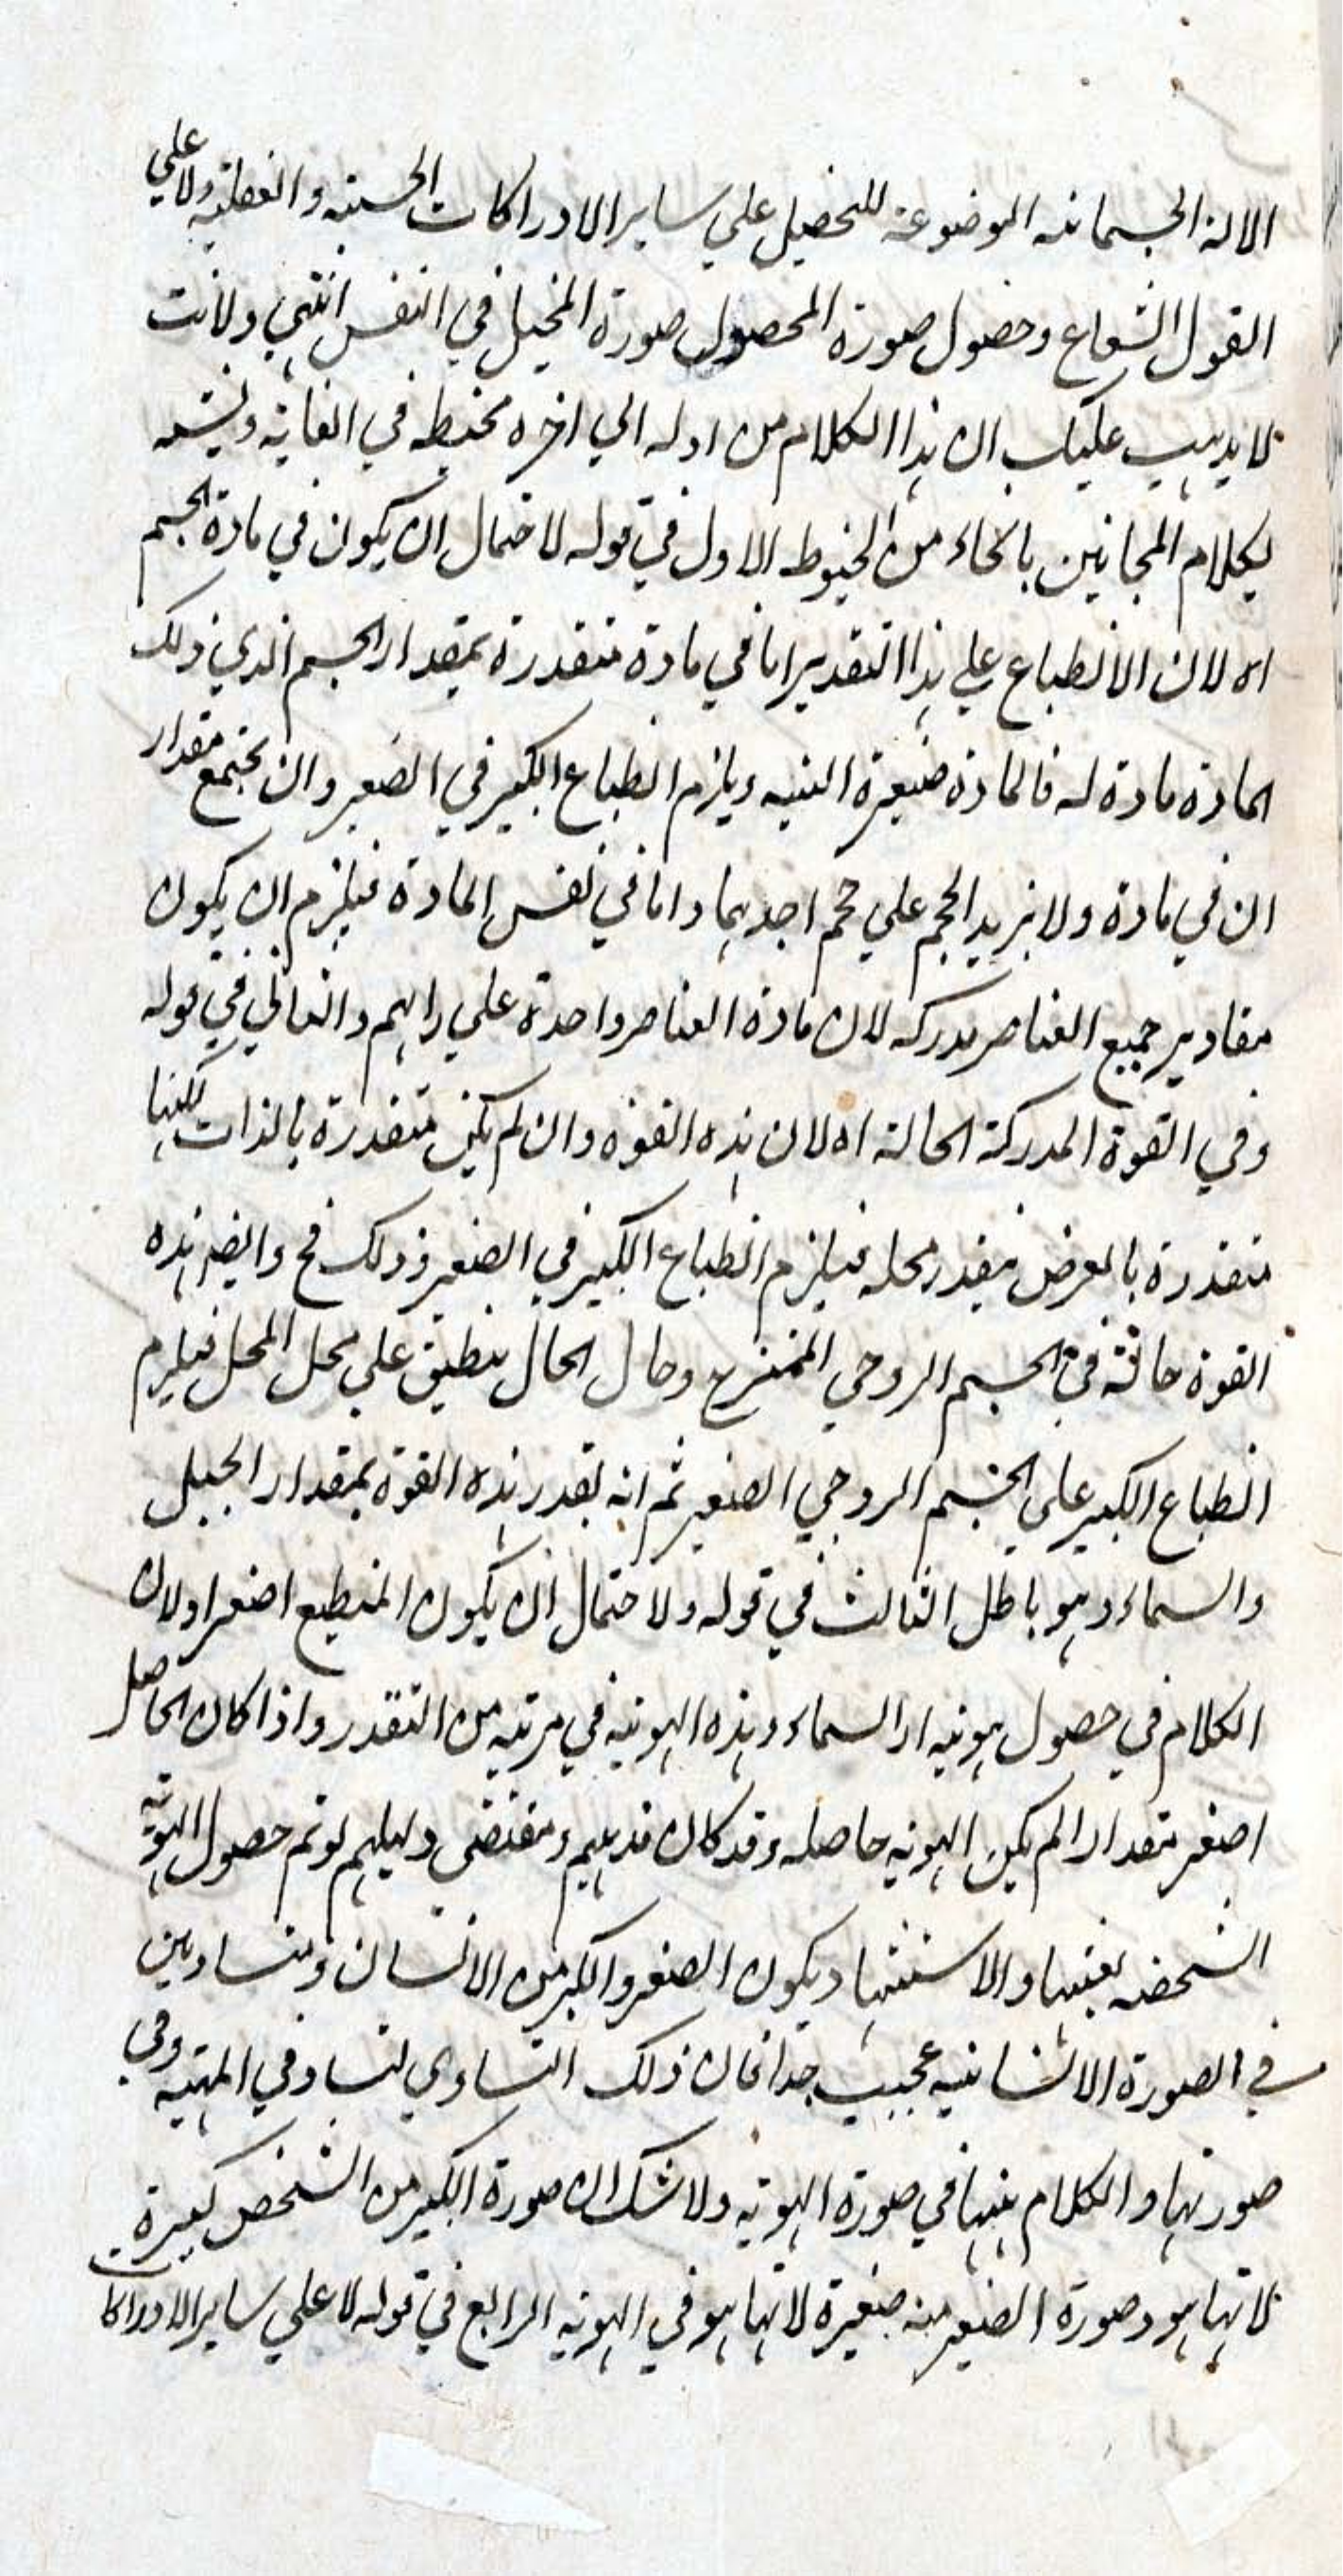 الالة الجسمانية الموضوعة للتحصيل علي ساير الادراكات الحسية والعقلية ولا علي
القول الشعاع وحصول صورة المحصول صورة المخيل في النفس انتهي ولانت
لا يذهب عليك ان هذا الكلام من اوله الي اخره مخبطه في الغاية ويشبه
لكلام المجانين بانحاء من الخبوط الاول في قوله لاحتمال ان يكون في مادة الجسم
اه لان الانطباع علي هذا التقدير اما في مادة متقدرة بمقدار الجسم الذي ذلك
المادة مادة له فالمادة صغيرة البنيه ويلزم انطباع الكبير في الصغير وان يجتمع مقدار
ان في مادة ولا يزيد الحجم علي حجم احدهما واما في نفس المادة فيلزم ان يكون
مقادير جميع العناصر مدركه لان مادة العناصر واحدة علي رايهم والثاني في قوله
وفي القوة المدركة الحالة اه لان هذه القوة وان لم يكن متقدرة بالذات لكنها
متقدرة بالعرض بقدر محله فيلزم انطباع الكبير في الصغير وذلك مح وايضه هذه
القوة حالة في الجسم الروحي الممتزج وحال الحال ينطبق علي محل المحل فيلزم
انطباع الكبير علي الجسم الروحي الصغير ثم انه بقدر هذه القوة بمقدار الجبل
والسماء وهو باطل الثالث في قوله ولاحتمال ان يكون المنطبع اصغر او لان
الكلام في حصول هوية السماء وهذه الهوية في مرتبه من التقدر واذا كان الحاصل
اصغر مقدارا لم يكن الهوية حاصله وقد كان مذهبهم ومقتضي دليلهم لو تم حصول الهوية
الشخصه بعينها والاستثنها ويكون الصغير والكبير من الانسان ومتساويين
في الصورة الانسانيه عجيب جدا فان ذلك التساوي لتساو في المهيه وفي
صورتهما والكلام ههنا في صورة الهوية ولا شك ان صورة الكبير من الشخص كبيرة
لانها هو وصورة الصغير منه صغيرة لانها هو في الهوية الرابع في قوله لا علي ساير الادراكا